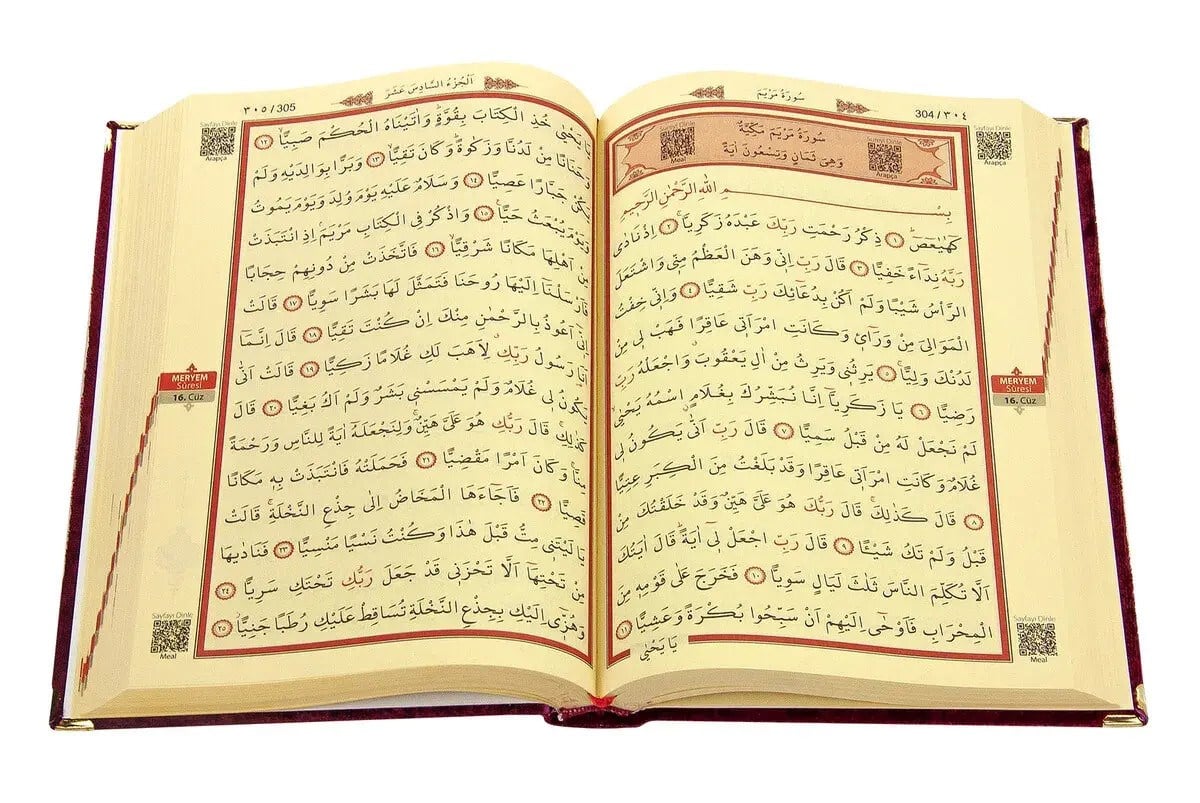 سُورَةُ مَرْيَمَ
304/٣٠٤
Sayfayı Dinle
Arapça
Meal
Arapça
سُورَةُ مَرْيَمَ مَكِّيَّةٌ
وَهِىَ ثَمَانٍ وَتِسْعُونَ اٰيَةً
بِسْمِ اللّٰهِ الرَّحْمٰنِ الرَّحٖيمِ
كٓهٰيٰعٓصٓ ١ ذِكْرُ رَحْمَتِ رَبِّكَ عَبْدَهُ زَكَرِيَّاۚ ٢ اِذْ نَادٰى
رَبَّهُ نِدَٓاءً خَفِيًّا ٣ قَالَ رَبِّ اِنّٖى وَهَنَ الْعَظْمُ مِنّٖى وَاشْتَعَلَ
الرَّأْسُ شَيْبًا وَلَمْ اَكُنْ بِدُعَٓائِكَ رَبِّ شَقِيًّا ٤ وَاِنّٖى خِفْتُ
الْمَوَالِىَ مِنْ وَرَٓائٖى وَكَانَتِ امْرَاَتٖى عَاقِرًا فَهَبْ لٖى مِنْ
لَدُنْكَ وَلِيًّاۙ ٥ يَرِثُنٖى وَيَرِثُ مِنْ اٰلِ يَعْقُوبَ وَاجْعَلْهُ رَبِّ
رَضِيًّا ٦ يَا زَكَرِيَّٓا اِنَّا نُبَشِّرُكَ بِغُلَامٍ اسْمُهُ يَحْيٰىۙ
لَمْ نَجْعَلْ لَهُ مِنْ قَبْلُ سَمِيًّا ٧ قَالَ رَبِّ اَنّٰى يَكُونُ لٖى
غُلَامٌ وَكَانَتِ امْرَاَتٖى عَاقِرًا وَقَدْ بَلَغْتُ مِنَ الْكِبَرِ عِتِيًّا
٨ قَالَ كَذٰلِكَۚ قَالَ رَبُّكَ هُوَ عَلَىَّ هَيِّنٌ وَقَدْ خَلَقْتُكَ مِنْ
قَبْلُ وَلَمْ تَكُ شَيْـًٔا ٩ قَالَ رَبِّ اجْعَلْ لٖٓى اٰيَةًۜ قَالَ اٰيَتُكَ
اَلَّا تُكَلِّمَ النَّاسَ ثَلٰثَ لَيَالٍ سَوِيًّا ١٠ فَخَرَجَ عَلٰى قَوْمِهٖ مِنَ
الْمِحْرَابِ فَاَوْحٰٓى اِلَيْهِمْ اَنْ سَبِّحُوا بُكْرَةً وَعَشِيًّا ١١
يَا يَحْيٰى
MERYEM
Sûresi
16. Cüz
Sayfayı Dinle
Meal
اَلْجُزْءُ السَّادِسَ عَشَرَ
٣٠٥/305
Sayfayı Dinle
Arapça
يَا يَحْيٰى خُذِ الْكِتَابَ بِقُوَّةٍۜ وَاٰتَيْنَاهُ الْحُكْمَ صَبِيًّاۙ ١٢
وَحَنَانًا مِنْ لَدُنَّا وَزَكٰوةًۜ وَكَانَ تَقِيًّاۙ ١٣ وَبَرًّا بِوَالِدَيْهِ وَلَمْ
يَكُنْ جَبَّارًا عَصِيًّا ١٤ وَسَلَامٌ عَلَيْهِ يَوْمَ وُلِدَ وَيَوْمَ يَمُوتُ
وَيَوْمَ يُبْعَثُ حَيًّا۟ ١٥ وَاذْكُرْ فِى الْكِتَابِ مَرْيَمَۢ اِذِ انْتَبَذَتْ
مِنْ اَهْلِهَا مَكَانًا شَرْقِيًّاۙ ١٦ فَاتَّخَذَتْ مِنْ دُونِهِمْ حِجَابًا
فَاَرْسَلْنَٓا اِلَيْهَا رُوحَنَا فَتَمَثَّلَ لَهَا بَشَرًا سَوِيًّا ١٧ قَالَتْ
اِنّٖٓى اَعُوذُ بِالرَّحْمٰنِ مِنْكَ اِنْ كُنْتَ تَقِيًّا ١٨ قَالَ اِنَّمَٓا
اَنَا۬ رَسُولُ رَبِّكِۗ لِاَهَبَ لَكِ غُلَامًا زَكِيًّا ١٩ قَالَتْ اَنّٰى
يَكُونُ لٖى غُلَامٌ وَلَمْ يَمْسَسْنٖى بَشَرٌ وَلَمْ اَكُ بَغِيًّا ٢٠ قَالَ
كَذٰلِكِۚ قَالَ رَبُّكِ هُوَ عَلَىَّ هَيِّنٌۚ وَلِنَجْعَلَهُٓ اٰيَةً لِلنَّاسِ وَرَحْمَةً
مِنَّاۚ وَكَانَ اَمْرًا مَقْضِيًّا ٢١ فَحَمَلَتْهُ فَانْتَبَذَتْ بِهٖ مَكَانًا
قَصِيًّا ٢٢ فَاَجَٓاءَهَا الْمَخَاضُ اِلٰى جِذْعِ النَّخْلَةِۚ قَالَتْ
يَا لَيْتَنٖى مِتُّ قَبْلَ هٰذَا وَكُنْتُ نَسْيًا مَنْسِيًّا ٢٣ فَنَادٰيهَا
مِنْ تَحْتِهَٓا اَلَّا تَحْزَنٖى قَدْ جَعَلَ رَبُّكِ تَحْتَكِ سَرِيًّا ٢٤
وَهُزّٖٓى اِلَيْكِ بِجِذْعِ النَّخْلَةِ تُسَاقِطْ عَلَيْكِ رُطَبًا جَنِيًّاۘ ٢٥
MERYEM
Sûresi
16. Cüz
Sayfayı Dinle
Meal